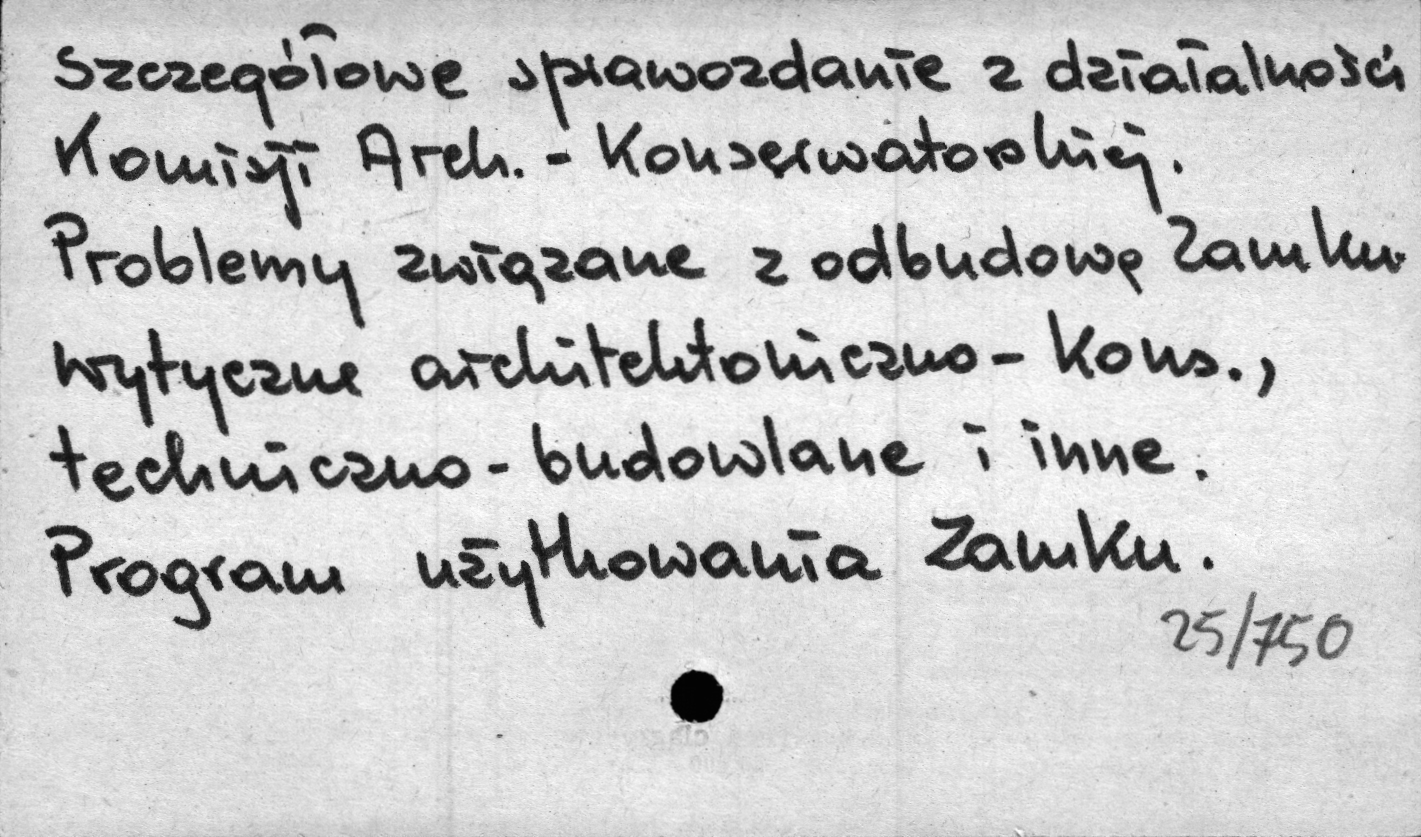 Szczegółowe sprawozdanie z działalności
Komisji Arch. - Konserwatorskiej.
Problemy związane z odbudową Zamku
wytyczne architektoniczno - Kons.,
techniczno - budowlane i inne.
Program użytkowania Zamku.
25/750